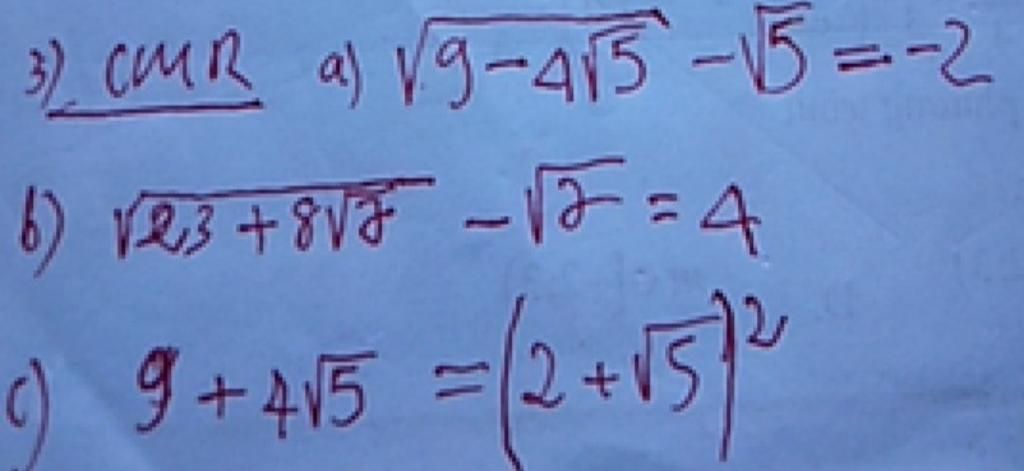 3) CMR a) √(9-4√5) - √5 = -2
b) √(23+8√7) - √7 = 4
c) 9+4√5 = (2+√5)²